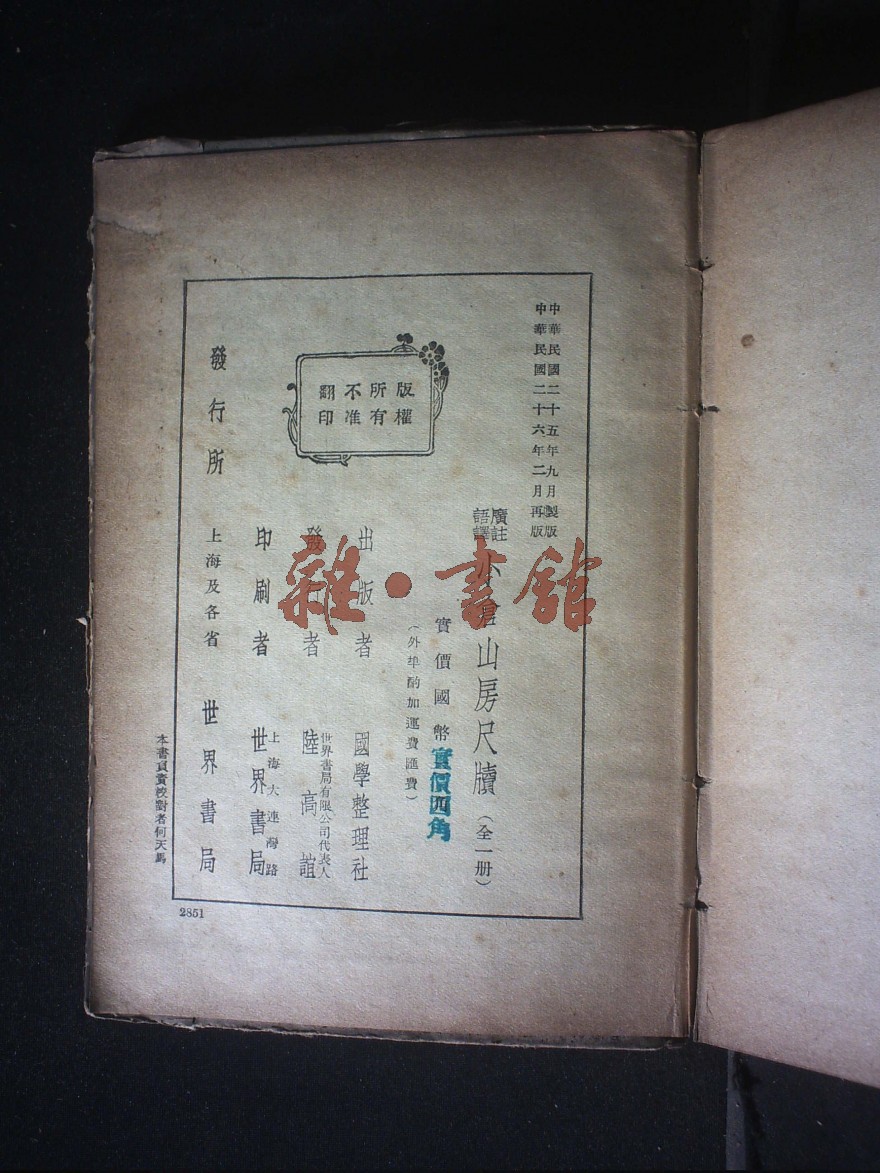 中華民國二十五年九月製版
中華民國二十六年二月再版
廣註
語譯
小倉山房尺牘（全一册）
實價國幣
實價四角
（外埠酌加運費匯費）
版權
所有
不准
翻印
出版者 國學整理社
發行者 世界書局有限公司代表人 陸高誼
印刷者 上海大連灣路 世界書局
發行所 上海及各省 世界書局
本書負責校對者何天馬
2851
雜·書館